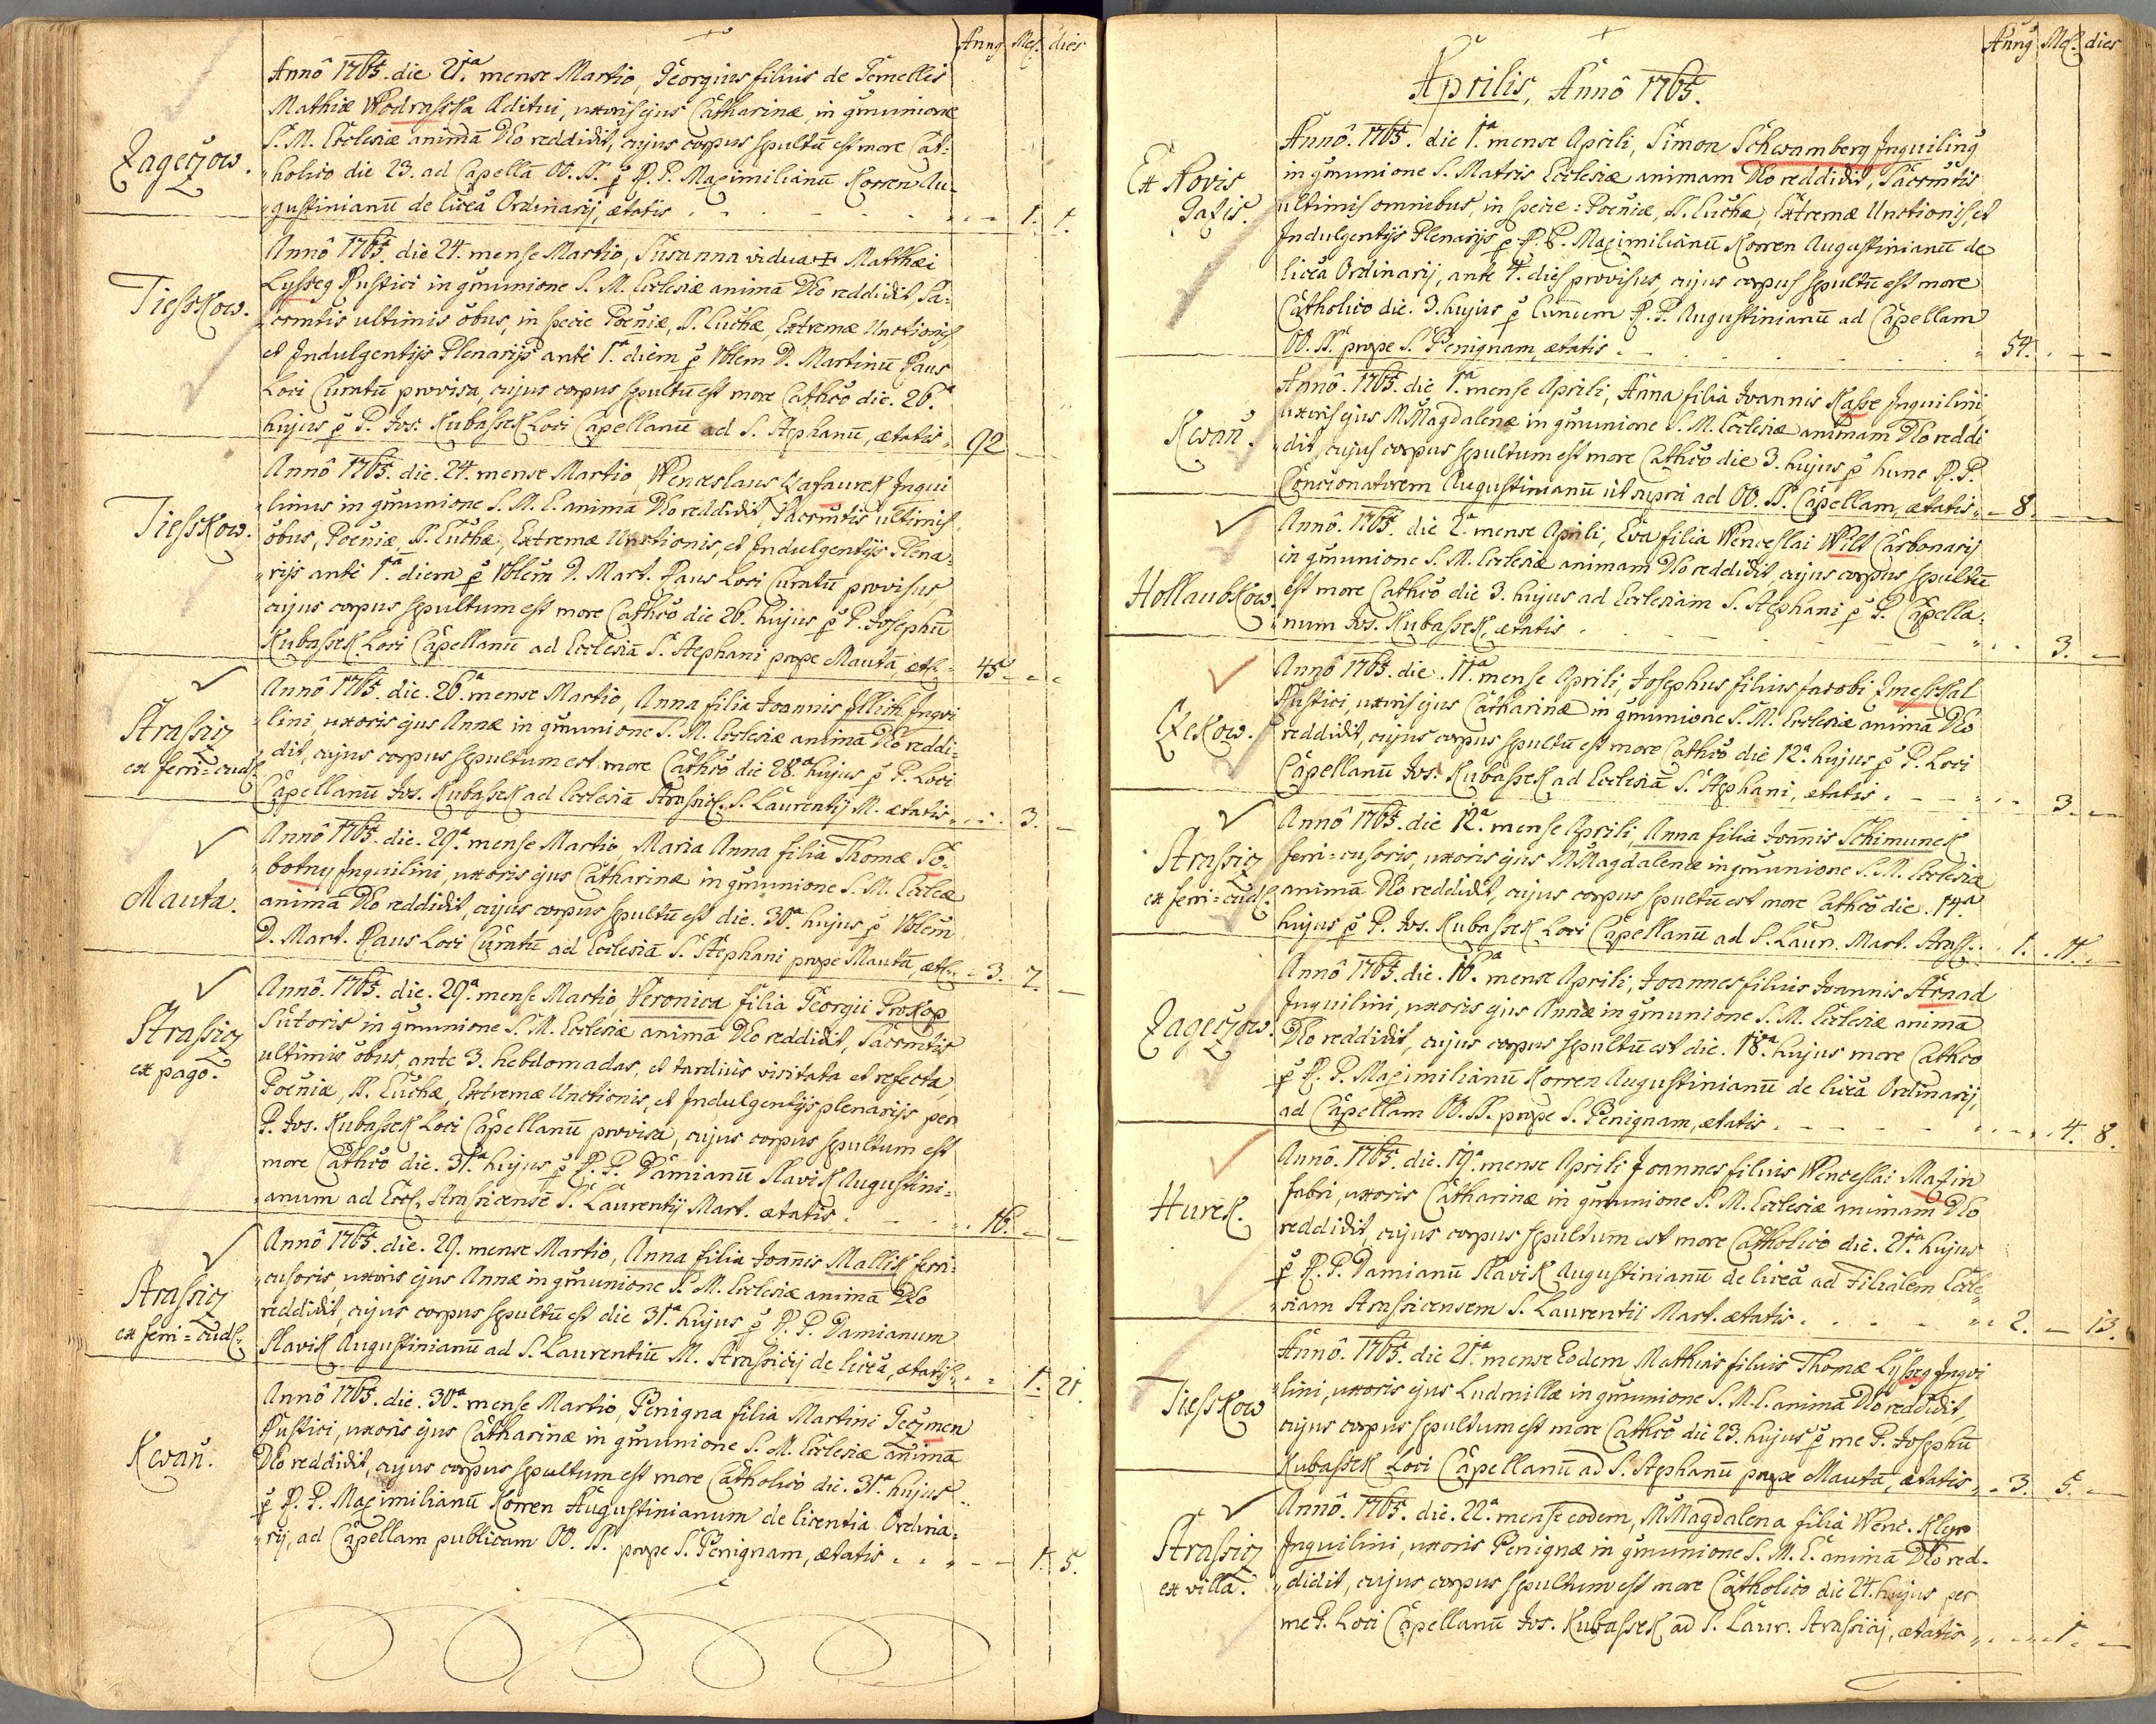 Anng Mes. dies
Annô 1765. die 21.ª mense Martio, Georgius filius de Gemellis
Mathiæ Wodrasska Æditui, uxoris ejus Catharinæ, in g̃munione
S. M. Ecclesiæ animã Dẽo reddidit, cujus corpus sepultũ est more Cat=
Zageczow. "holico die 23. ad Capellã OO. SS. p̃ A. P. Maximilianũ Korren Au=
"gustinianũ de licẽa Ordinarij, ætatis . - - - 1. 1.
Annô 1765. die 24. mense Martio, Susanna vidua + Matthæi
Lysseg Rustici in g̃munione S. M. Ecclesiæ animã Dẽo reddidit, Sa=
Tiesskow. "crmtis ultimis õbus, in specie Poẽniæ, SS. Euchæ, Extremæ Unctionis
et Indulgentijs Plenarijs ante 1.ª diem p̃ Vblem D. Martinũ Paus
Loci Curatũ provisa, cujus corpus sepultũ est more Cathcõ die. 26.ª
hujus p̃ P. Jos: Kubassek Loci Capellanũ ad S. Stephanũ, ætatis. 92 -
Annô 1765. die. 24. mense Martio, Wenceslaus Zafaurek Inqui
"linus in g̃munione S. M. E. animã Dẽo reddidit, Sacrmtis ultimis
Tiesskow. õbus, Poẽniæ, SS. Euchæ, Extremæ Unctionis, et Indulgentijs Plena=
"rijs ante 1.ª diem p̃ Vblẽm D. Mart. Paus Loci Curatũ provisus,
cujus corpus sepultum est more Cathcõ die 26. hujus p̃ P. Josephũ
Kubassek Loci Capellanũ ad Ecclesiã S. Stephani prope Mautã, æts. 45 - -
Annô 1765. die. 26.ª mense Martio, Anna filia Joannis Illich Inqui
Strassicz "lini, uxoris ejus Annæ in g̃munione S. M. Ecclesiæ animã Dẽo reddi=
ex ferri=cud. "dit, cujus corpus sepultum est more Cathcõ die 28.ª hujus p̃ P. Loci
Capellanũ Jos. Kubassek ad Ecclesiã Strassics. S. Laurentij M. ætatis . . 3. -
Annô 1765. die. 29.ª mense Martio, Maria Anna filia Thomæ So=
"botny Inquilini, uxoris ejus Catharinæ in g̃munione S. M. Eccleæ
Mauta. animã Dẽo reddidit, cujus corpus sepultũ est die. 30.ª hujus p̃ Vblẽm
D. Mart. Paus Loci Curatũ ad Ecclesiã S. Stephani prope Mautã, æts. - 3. 7. -
Annô. 1765. die. 29.ª mense Martio, Veronica filia Georgii Prokop
Strassicz Sutoris in g̃munione S. M. Ecclesiæ animã Dẽo reddidit, Sacrmtis
ex pago. ultimis õbus, ante 3. hebdomadas, et tardius visitata et refecta,
Poẽniæ, SS. Euchæ, Extremæ Unctionis, et Indulgentijs plenarijs per
P. Jos. Kubassek Loci Capellanũ provisa, cujus corpus sepultum est
more Cathcõ die. 31.ª hujus p̃ A. P. Damianũ Slavik Augustini=
"anum ad Eccl. Strassicensẽ S. Laurentij Mart. ætatis . - - 16. - -
Annô 1765. die. 29. mense Martio, Anna filia Joañis Mallik ferri=
Strassicz "cusoris, uxoris ejus Annæ in g̃munione S. M. Ecclesiæ animã Dẽo
ex ferri=cud. reddidit, cujus corpus sepultũ est die 31.ª hujus p̃ A. P. Damianum
Slavik Augustinianũ ad S. Laurentiũ M. Strassicij de licẽa, ætatis - - 1. 21.
Annô 1765. die. 30.ª mense Martio, Penigna filia Martini Geczmen
Kwañ. Rustici, uxoris ejus Catharinæ in g̃munione S. M. Ecclesiæ animã
Dẽo reddidit, cujus corpus sepultum est more Catholico die. 31.ª hujus
p̃ A. P. Maximilianũ Korren Augustinianum de licentia Ordina=
"rij, ad Capellam publicam OO. SS. prope S. Penignam, ætatis . . - - 1. 5.
Anng Mes. dies
Aprilis, Annô 1765.
Annô. 1765. die 1.ª mense Aprili, Simon Schwamberg Inquiling
Ex Novis in g̃munione S. Matris Ecclesiæ animam Dẽo reddidit, Sacrmtis
Gazis. ultimis omnibus, in specie: Poẽniæ, SS. Euchæ, Extremæ Unctionis, et
Indulgentijs Plenarijs p̃ A. P. Maximilianũ Korren Augustinianũ de
licẽa Ordinarij, ante 4. dies provisus, cujus corpus sepultũ est more
Catholico die. 3. hujus p̃ eundem A. P. Augustinianũ ad Capellam
OO. SS. prope S. Penignam, ætatis . . . . . 54. - -
Annô. 1765. die 1.ª mense Aprili, Anna filia Joannis Kasse Inquilini
Kwañ. uxoris ejus M Magdalenæ in g̃munione S. M. Ecclesiæ animam Dẽo reddi
"dit, cujus corpus sepultum est more Cathcõ die 3. hujus p̃ hunc A. P.
Concionatorem Augustinianũ ut supra ad OO. SS. Capellam, ætatis - 8. -
Annô. 1765. die 2.ª mense Aprili, Eva filia Wenceslai Wilt Carbonarij
in g̃munione S. M. Ecclesiæ animam Dẽo reddidit, cujus corpus sepultũ
Hollaubkow. est more Cathcõ die 3. hujus ad Ecclesiam S. Stephani p̃ P. Capella=
num Jos. Kubassek, ætatis . - - - - 3. -
Annô 1765. die. 11.ª mense Aprili, Josephus filius Jacobi Zmeskal
Rustici, uxoris ejus Catharinæ in g̃munione S. M. Ecclesiæ animã Dẽo
Czekow. reddidit, cujus corpus sepultũ est more Cathcõ die 12.ª hujus p̃ P. Loci
Capellanũ Jos. Kubassek ad Ecclesiã S. Stephani, ætatis . - - - 3. -
Annô 1765. die 12.ª mense Aprili, Anna filia Joañis Schimunek
Strassicz ferri=cusoris, uxoris ejus M Magdalenæ in g̃munione S. M. Ecclesiæ
ex ferri=cud. animã Dẽo reddidit, cujus corpus sepultũ est more Cathcõ die. 14.ª
hujus p̃ P. Jos. Kubassek Loci Capellanũ ad S. Laur. Mart. Strass. . 1. 11. -
Annô 1765. die. 16.ª mense Aprili, Joannes filius Joannis Arnad
Inquilini, uxoris ejus Annæ in g̃munione S. M. Ecclesiæ animã
Zageczow. Dẽo reddidit, cujus corpus sepultũ est die. 18.ª hujus more Cathco
p̃ A. P. Maximilianũ Korren Augustinianũ de licẽa Ordinarij,
ad Capellam OO. SS. prope S. Penignam, ætatis . - - - 4. 8.
Annô. 1765. die. 19.ª mense Aprili Joannes filius Wenceslai Mazin
Hurek. fabri, uxoris Catharinæ in g̃munione S. M. Ecclesiæ animam Dẽo
reddidit, cujus corpus sepultum est more Catholico die. 21.ª hujus
p̃ A. P. Damianũ Slavik Augustinianũ de licẽa ad Filialem Eccle=
"siam Strassicensem S. Laurentii Mart. ætatis . . . - 2. - 13.
Annô. 1765. die 21.ª mense Eodem Mathias filius Thomæ Lysseg Inqui
Tiesskow "lini, uxoris ejus Ludmillæ in g̃munione S. M. E. animã Dẽo reddidit,
cujus corpus sepultum est more Cathcõ die 23. hujus p̃ me P. Josephũ
Kubassek Loci Capellanũ ad S. Stephanũ prope Mautã, ætatis - 3. 5. -
Annô. 1765. die. 22.ª mense eodem, M Magdalena filia Wenc. Klyr
Strassicz Inquilini, uxoris Penignæ in g̃munione S. M. E. animã Dẽo red=
ex villa. "didit, cujus corpus sepultum est more Catholico die 24. hujus per
me P. Loci Capellanũ Jos. Kubassek ad S. Laur. Strassicij, ætatis - - 1. -